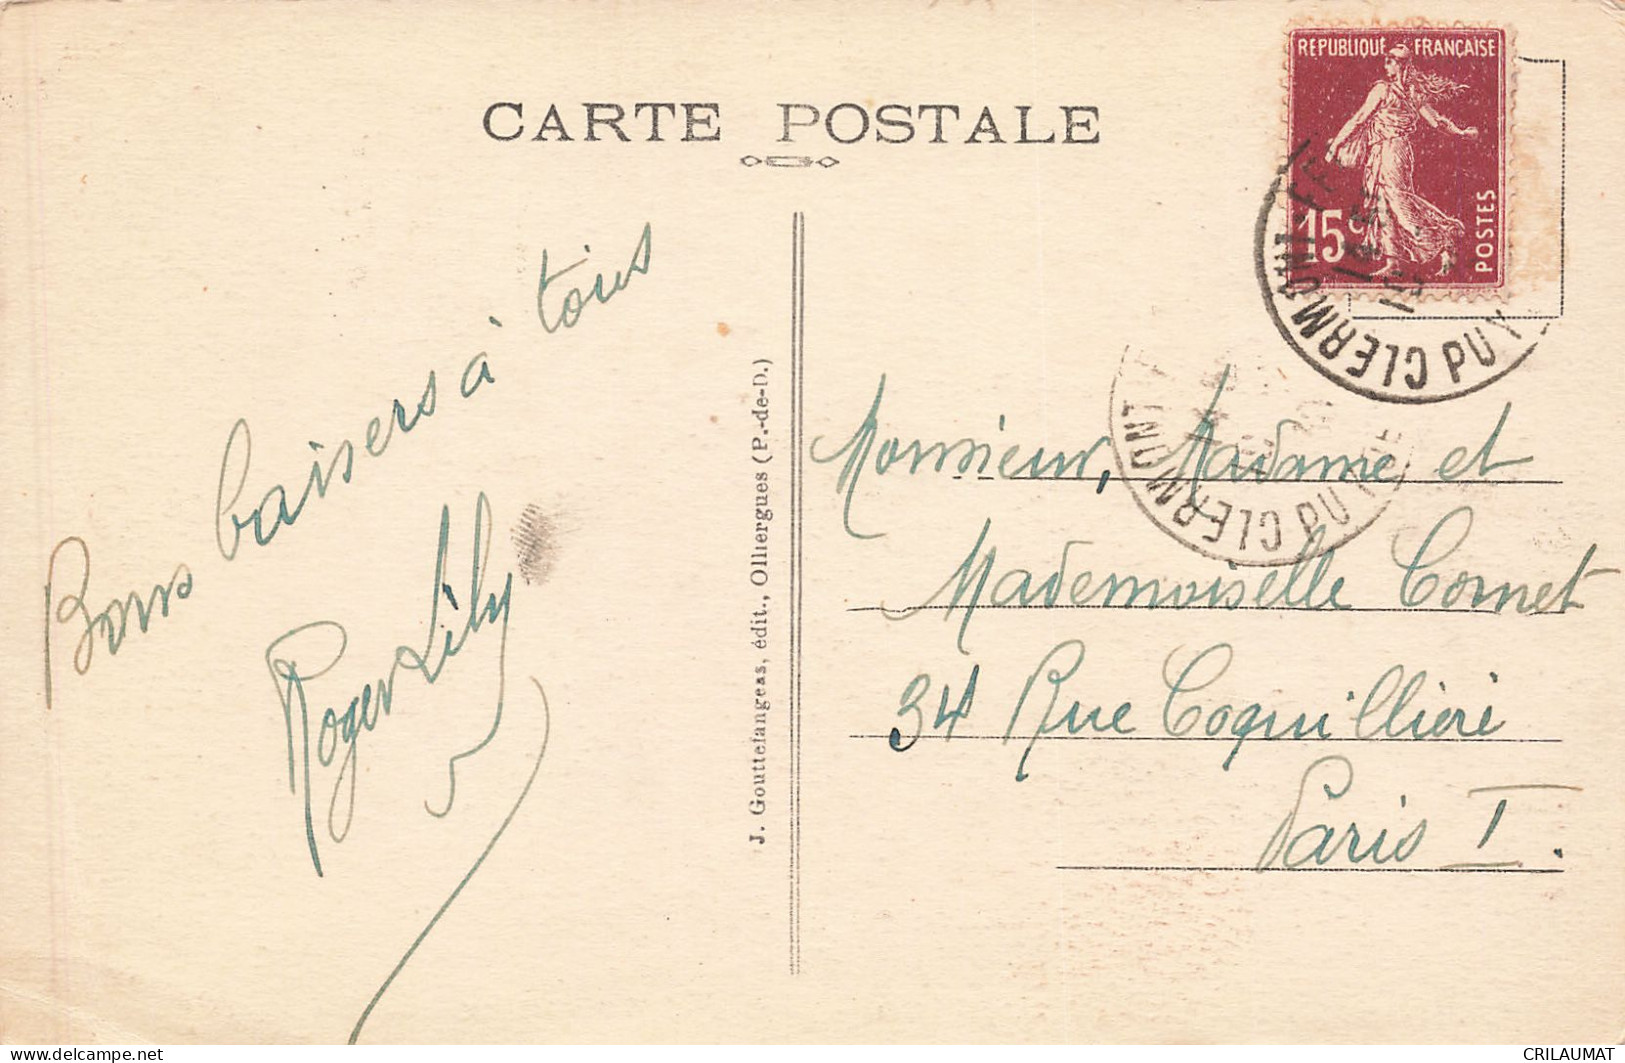 CARTE POSTALE
REPUBLIQUE FRANÇAISE
15c
POSTES
CLERMONT-FE
PUY
CLERMONT
PUY
Bons baisers à tous
Roger Lily
J. Gouttefangeas, édit., Olliergues (P.-de-D.)
Monsieur, Madame et
Mademoiselle Cornet
34 Rue Coquillière
Paris I.
delcampe.net
CRILAUMAT